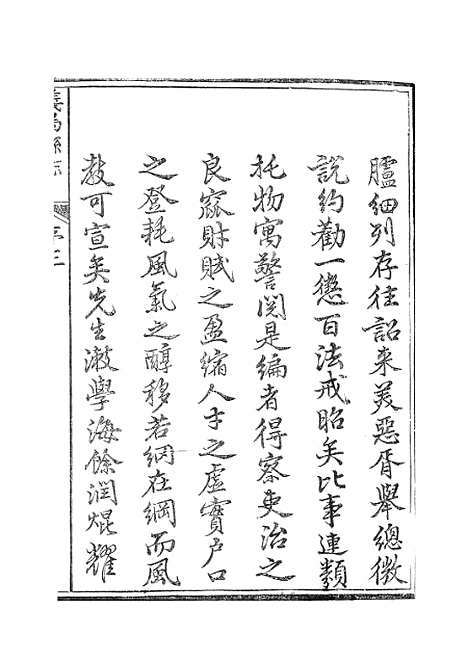 臚細列存往詔来美惡胥舉總微
說約勸一懲百法戒昭矣比事連類
托物寓警閱是編者得察吏治之
良窳財賦之盈縮人才之虛實户口
之登耗風氣之醇移若網在綱而風
教可宣矣先生漱學海餘潤焜耀